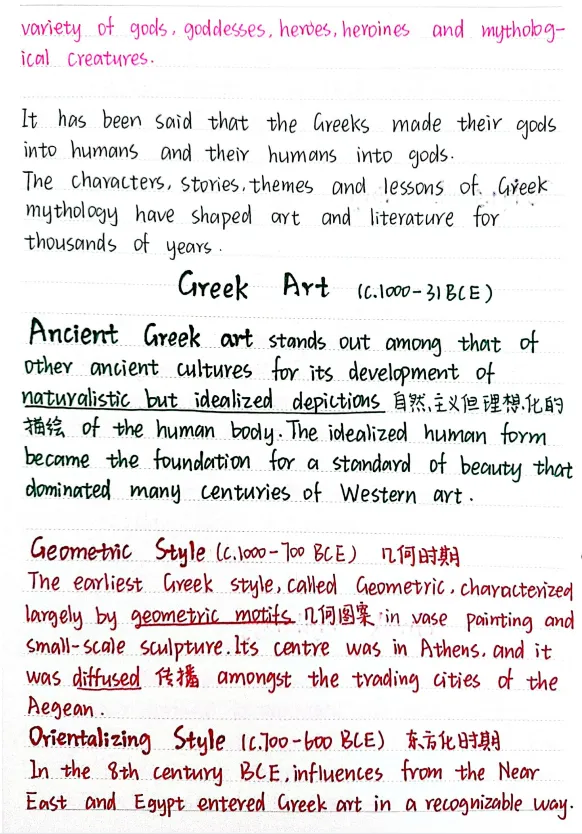 variety of gods, goddesses, heroes, heroines and mytholog-
ical creatures.
It has been said that the Greeks made their gods
into humans and their humans into gods.
The characters, stories, themes and lessons of Greek
mythology have shaped art and literature for
thousands of years.
Greek Art (c.1000-31 BCE)
Ancient Greek art stands out among that of
other ancient cultures for its development of
naturalistic but idealized depictions 自然主义但理想化的
描绘 of the human body. The idealized human form
became the foundation for a standard of beauty that
dominated many centuries of Western art.
Geometric Style (c.1000-700 BCE) 几何时期
The earliest Greek style, called Geometric, characterized
largely by geometric motifs 几何图案 in vase painting and
small-scale sculpture. Its centre was in Athens, and it
was diffused 传播 amongst the trading cities of the
Aegean.
Orientalizing Style (c.700-600 BCE) 东方化时期
In the 8th century BCE, influences from the Near
East and Egypt entered Greek art in a recognizable way.